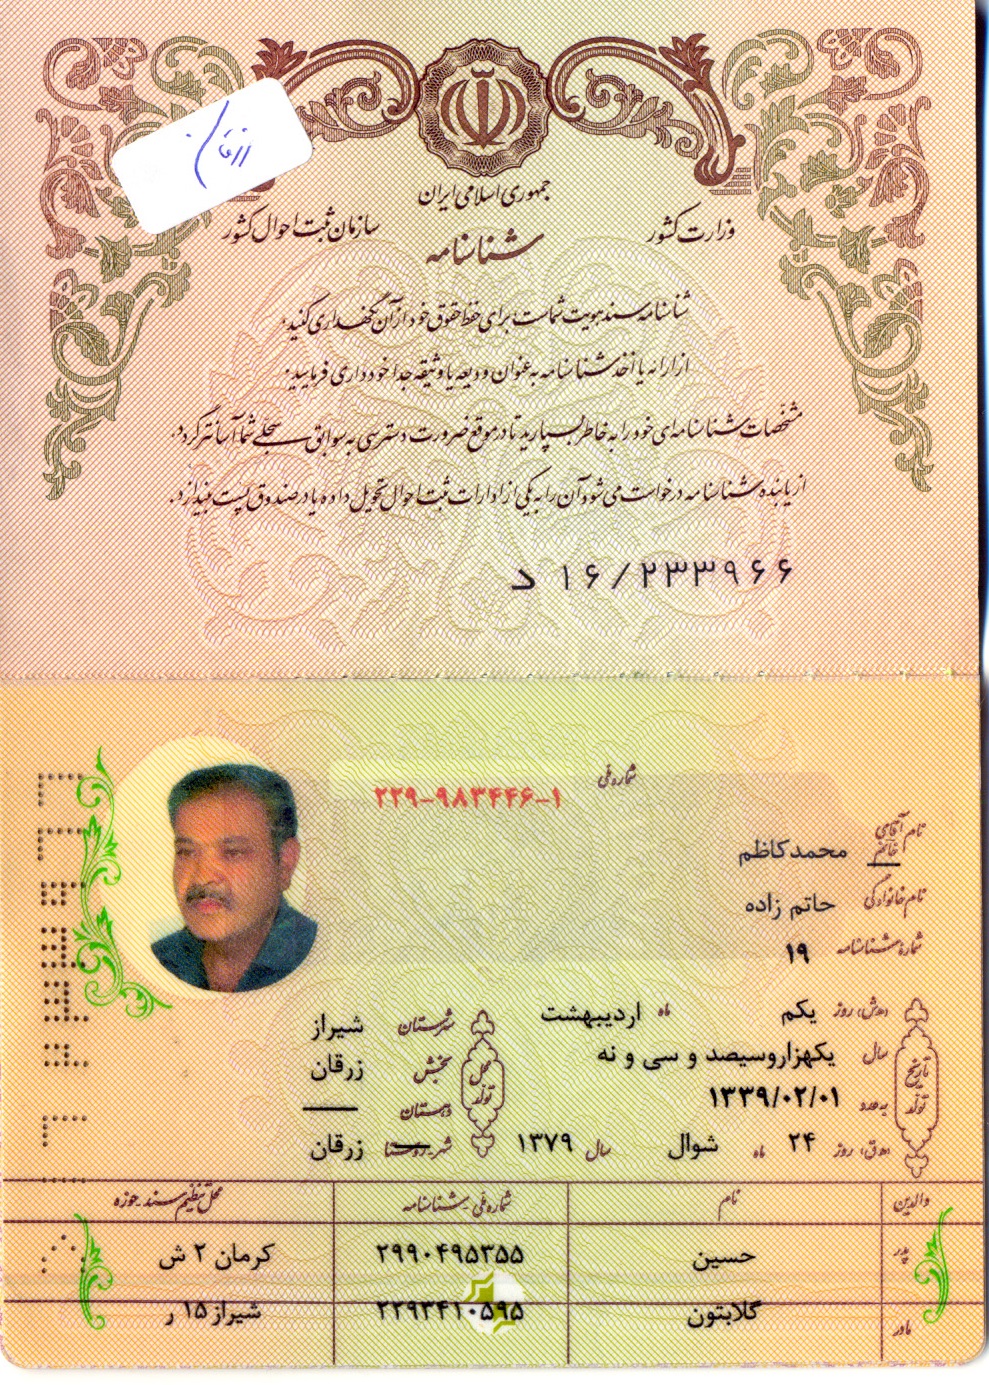 زرقان
جمهوری اسلامی ایران
وزارت کشور
سازمان ثبت احوال کشور
شناسنامه
شناسنامه سند هویت شماست برای حفظ حقوق خود از آن نگهداری کنید.
از ارائه یا اخذ شناسنامه به عنوان ودیعه یا وثیقه جدا خودداری فرمایید.
مشخصات شناسنامه‌ای خود را به خاطر بسپارید تا در موقع ضرورت دسترسی به سوابق سجلی شما آسانتر گردد.
از یابنده شناسنامه درخواست می‌شود آن را به یکی از ادارات ثبت احوال تحویل داده یا در صندوق پست بیندازد.
د ۱۶/۲۳۳۹۶۶
شماره ملی
۲۲۹-۹۸۳۴۴۶-۱
نام آقای خانم محمدکاظم
نام خانوادگی حاتم زاده
شماره شناسنامه ۱۹
تاریخ تولد
(ه‍.ش) روز یکم ماه اردیبهشت
سال یکهزاروسیصد و سی و نه
به عدد ۱۳۳۹/۰۲/۰۱
(ه‍.ق) روز ۲۴ ماه شوال سال ۱۳۷۹
محل تولد
شهرستان شیراز
بخش زرقان
دهستان
شهر-روستا زرقان
والدین نام شماره ملی-شناسنامه محل تنظیم سند-حوزه
پدر حسین ۲۹۹۰۴۹۵۳۵۵ کرمان ۲ ش
مادر گلابتون ۲۲۹۳۴۱۰۵۹۵ شیراز ۱۵ ر